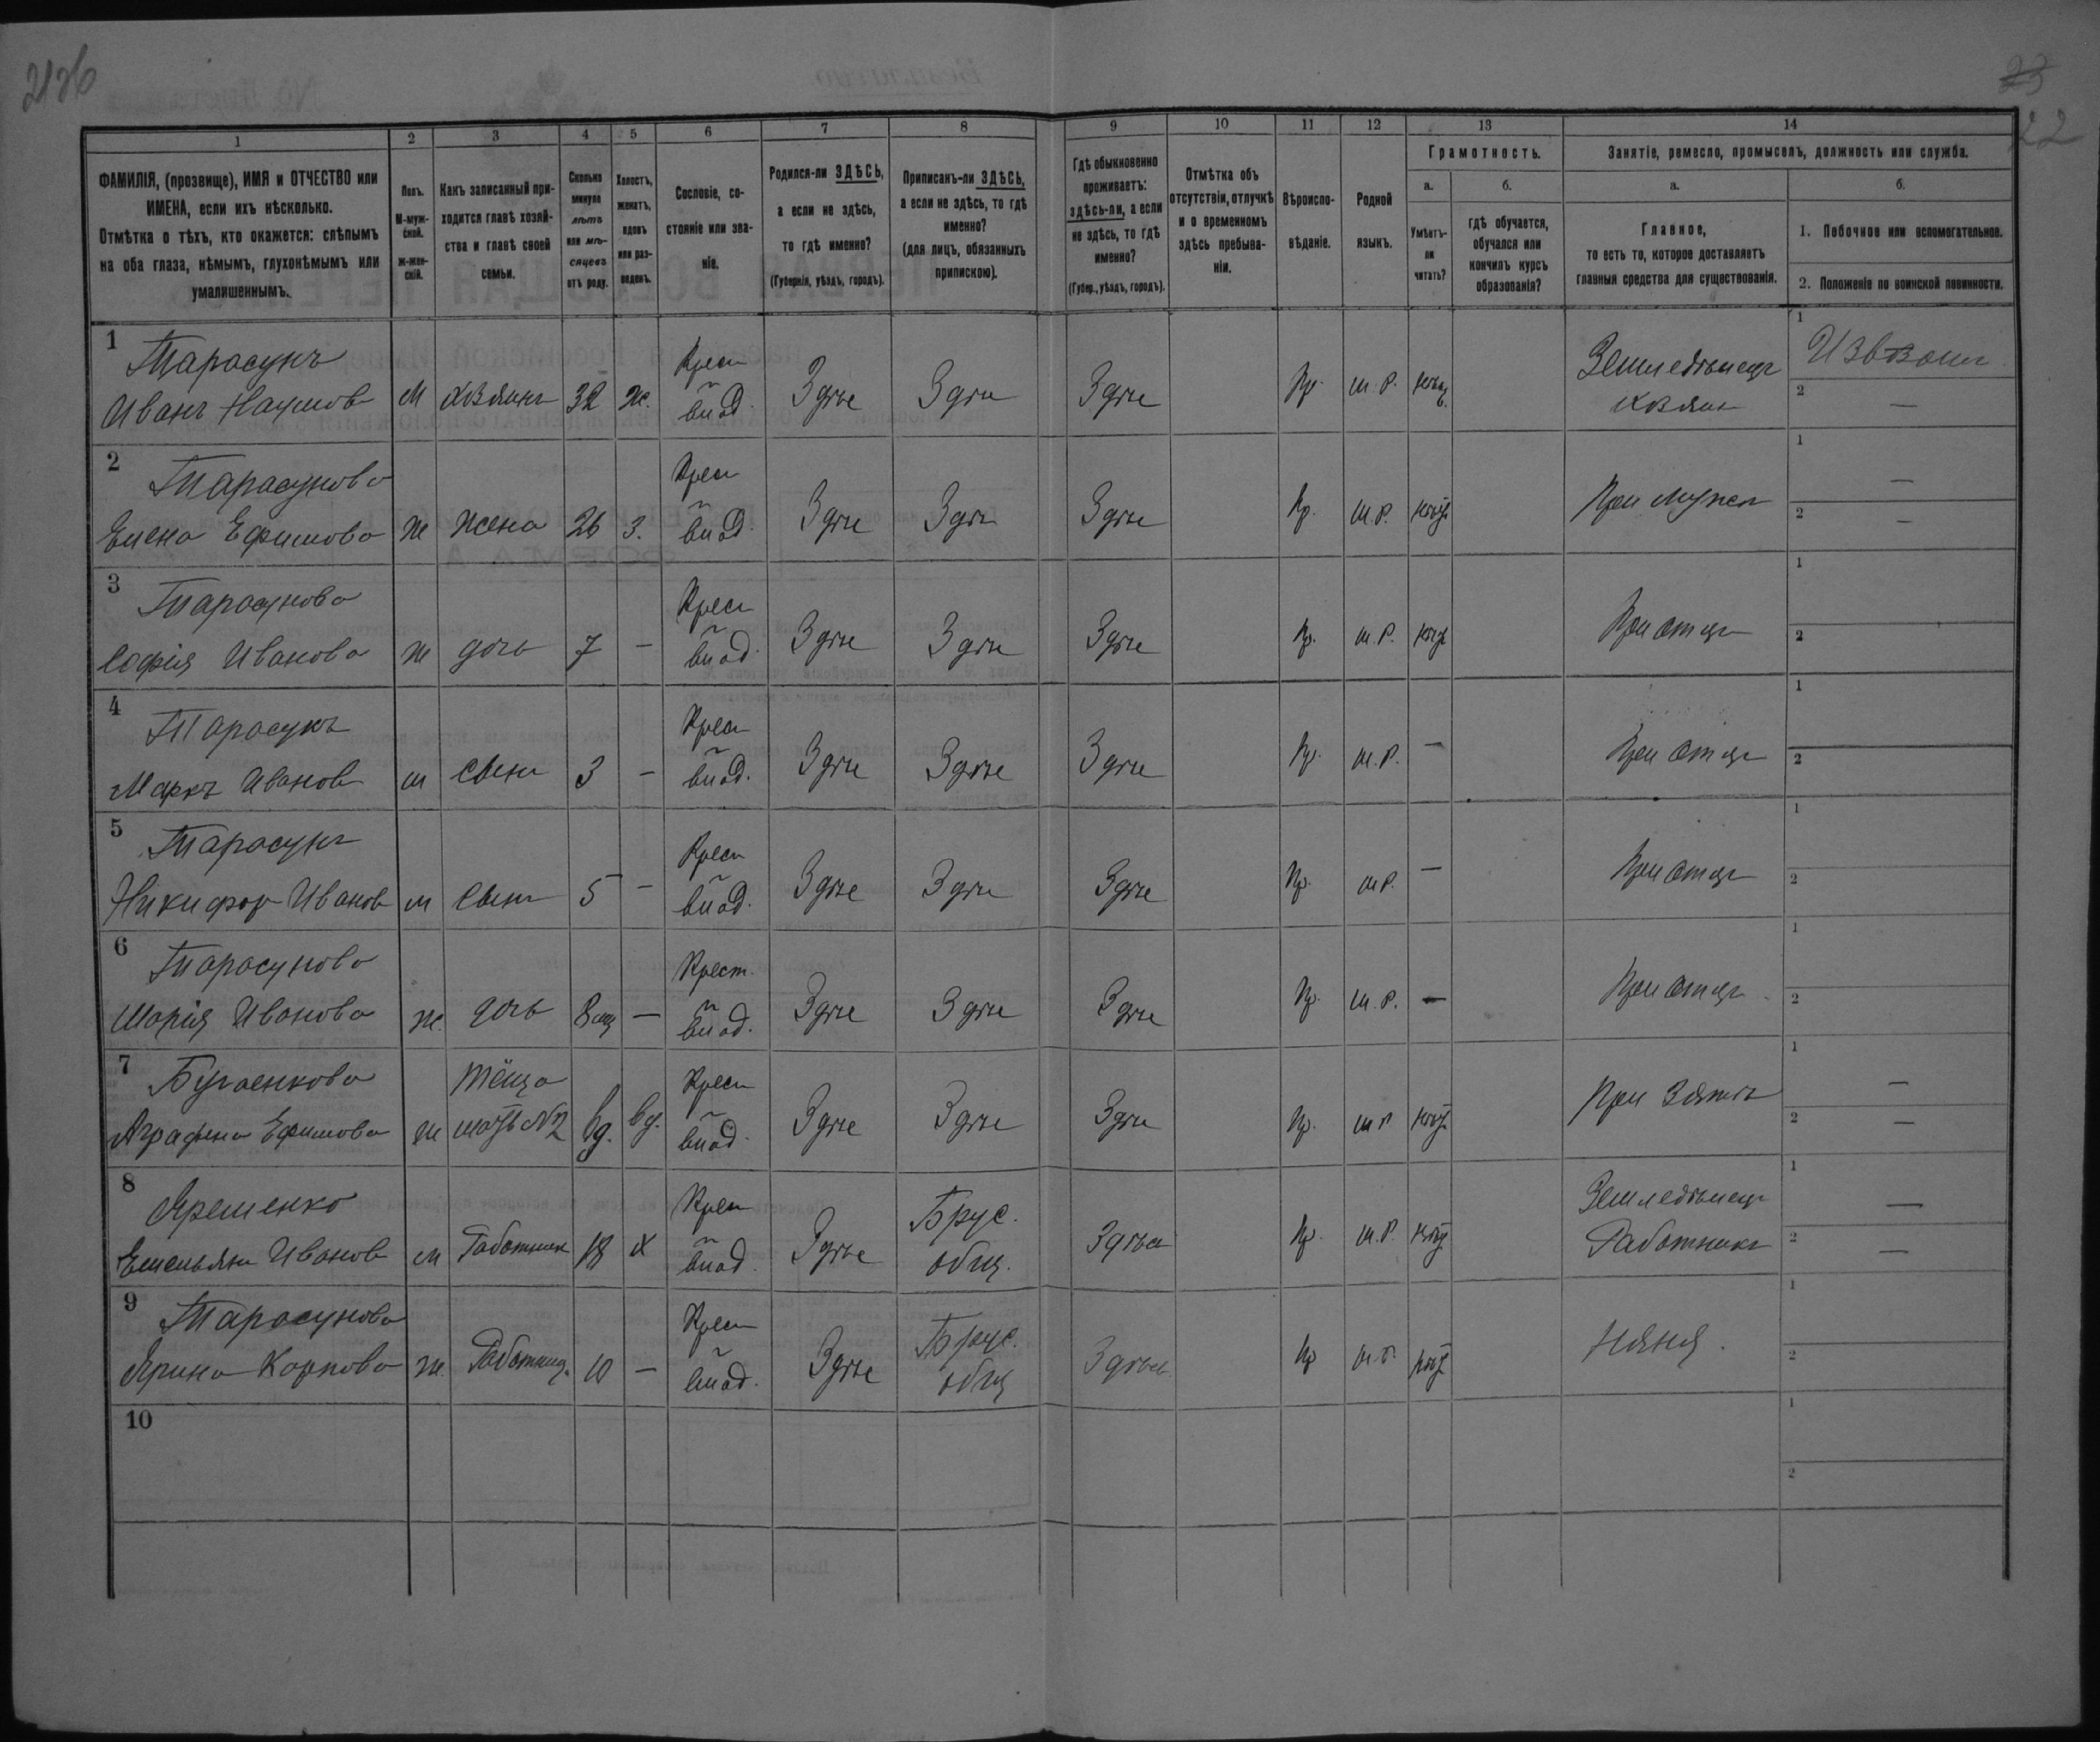 23
22
1 2 3 4 5 6 7 8 9 10 11 12 13 14
ФАМИЛІЯ, (прозвище), ИМЯ и ОТЧЕСТВО или
ИМЕНА, если ихъ нѣсколько.
Отмѣтка о тѣхъ, кто окажется: слѣпымъ
на оба глаза, нѣмымъ, глухонѣмымъ или
умалишеннымъ.
Полъ.
М-муж-
ской.
ж-жен-
скій.
Какъ записанный при-
ходится главѣ хозяй-
ства и главѣ своей
семьи.
Сколько
минуло
лѣтъ
или мѣ-
сяцевъ
отъ роду.
Холостъ,
женатъ,
вдовъ
или раз-
веденъ.
Сословіе, со-
стояніе или зва-
ніе.
Родился-ли ЗДѢСЬ,
а если не здѣсь,
то гдѣ именно?
(Губернія, уѣздъ, городъ).
Приписанъ-ли ЗДѢСЬ,
а если не здѣсь, то гдѣ
именно?
(для лицъ, обязанныхъ
припискою).
Гдѣ обыкновенно
проживаетъ:
здѣсь-ли, а если
не здѣсь, то гдѣ
именно?
(Губер., уѣздъ, городъ).
Отмѣтка объ
отсутствіи, отлучкѣ
и о временномъ
здѣсь пребыва-
ніи.
Вѣроиспо-
вѣданіе.
Родной
языкъ.
Грамотность.
а.
Умѣетъ-
ли
читать?
б.
гдѣ обучается,
обучался или
кончилъ курсъ
образованія?
Занятіе, ремесло, промыселъ, должность или служба.
а.
Главное,
то есть то, которое доставляетъ
главныя средства для существованія.
б.
1. Побочное или вспомогательное.
2. Положеніе по воинской повинности.
1 Тарасунъ Крест 1
Иванъ Наумов М хозяинъ 32 ж. влад. Здѣсе Здѣсе Здѣсе Пр. м.р. нѣт Земледѣлецъ
хозяин 2 —
2 Тарасунова Крест 1 —
Елена Ефимова ж жена 26 з. влад. Здѣсе Здѣсе Здѣсе Пр. м.р. нѣт При мужѣ 2 —
3 Тарасунова Крест 1
Софія Иванова ж дочь 7 — влад. Здѣсе Здѣсе Здѣсе Пр. м.р. нѣт При отцѣ 2
4 Тарасунъ Крест 1
Маркъ Иванов м сынъ 3 — влад. Здѣсе Здѣсе Здѣсе Пр. м.р. — При отцѣ 2
5 Тарасунъ Крест 1
Никифор Иванов м сынъ 5 — влад. Здѣсе Здѣсе Здѣсе Пр. м.р. — При отцѣ 2
6 Тарасунова Крест. 1
Марія Иванова ж. дочь 8 мц — влад. Здѣсе Здѣсе Здѣсе Пр. м.р. — При отцѣ 2
7 Бугаенкова тёща Крест 1 —
Аграфена Ефимова ж мать №2 вд. влад. Здѣсе Здѣсе Здѣсе Пр. м.р. нѣт При зятѣ 2 —
8 Яременко Крест Брус. Земледѣлецъ 1 —
Емельян Иванов м Работник 18 х влад. Здѣсе общ. Здѣсь Пр. м.р. нѣт Работникъ 2 —
9 Тарасунова Крест Брус. 1
Ярина Карпова ж. Работниц. 10 — влад. Здѣсе общ Здѣсь Пр м.р. нѣт Няня. 2
10 1
2